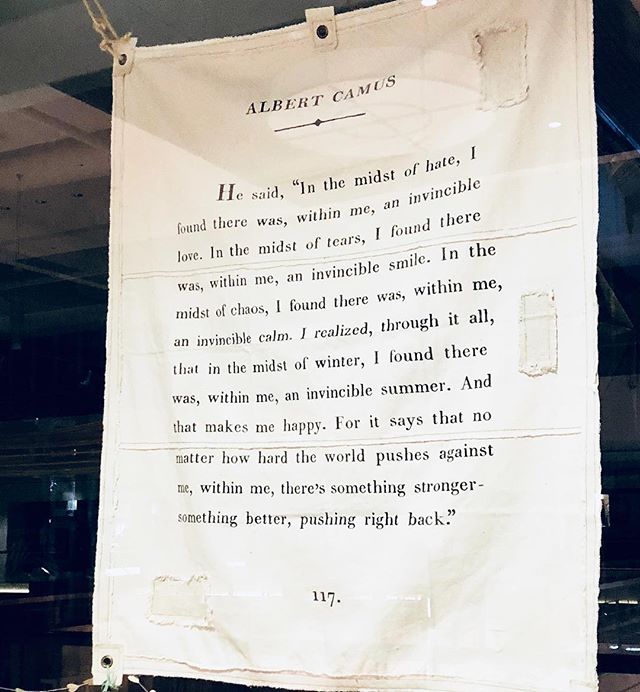 ALBERT CAMUS
He said, “In the midst of hate, I
found there was, within me, an invincible
love. In the midst of tears, I found there
was, within me, an invincible smile. In the
midst of chaos, I found there was, within me,
an invincible calm. I realized, through it all,
that in the midst of winter, I found there
was, within me, an invincible summer. And
that makes me happy. For it says that no
matter how hard the world pushes against
me, within me, there's something stronger-
something better, pushing right back.”
117.